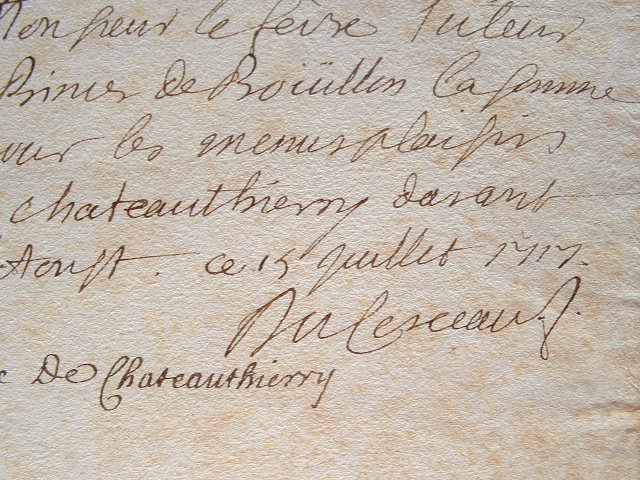 Monsieur le feire Tuteur
Princes de Boüillon la somme
pour les menus plaisirs
chateauthierry darant
Aoust. ce 15 Juillet 1717.
De Chateauthierry